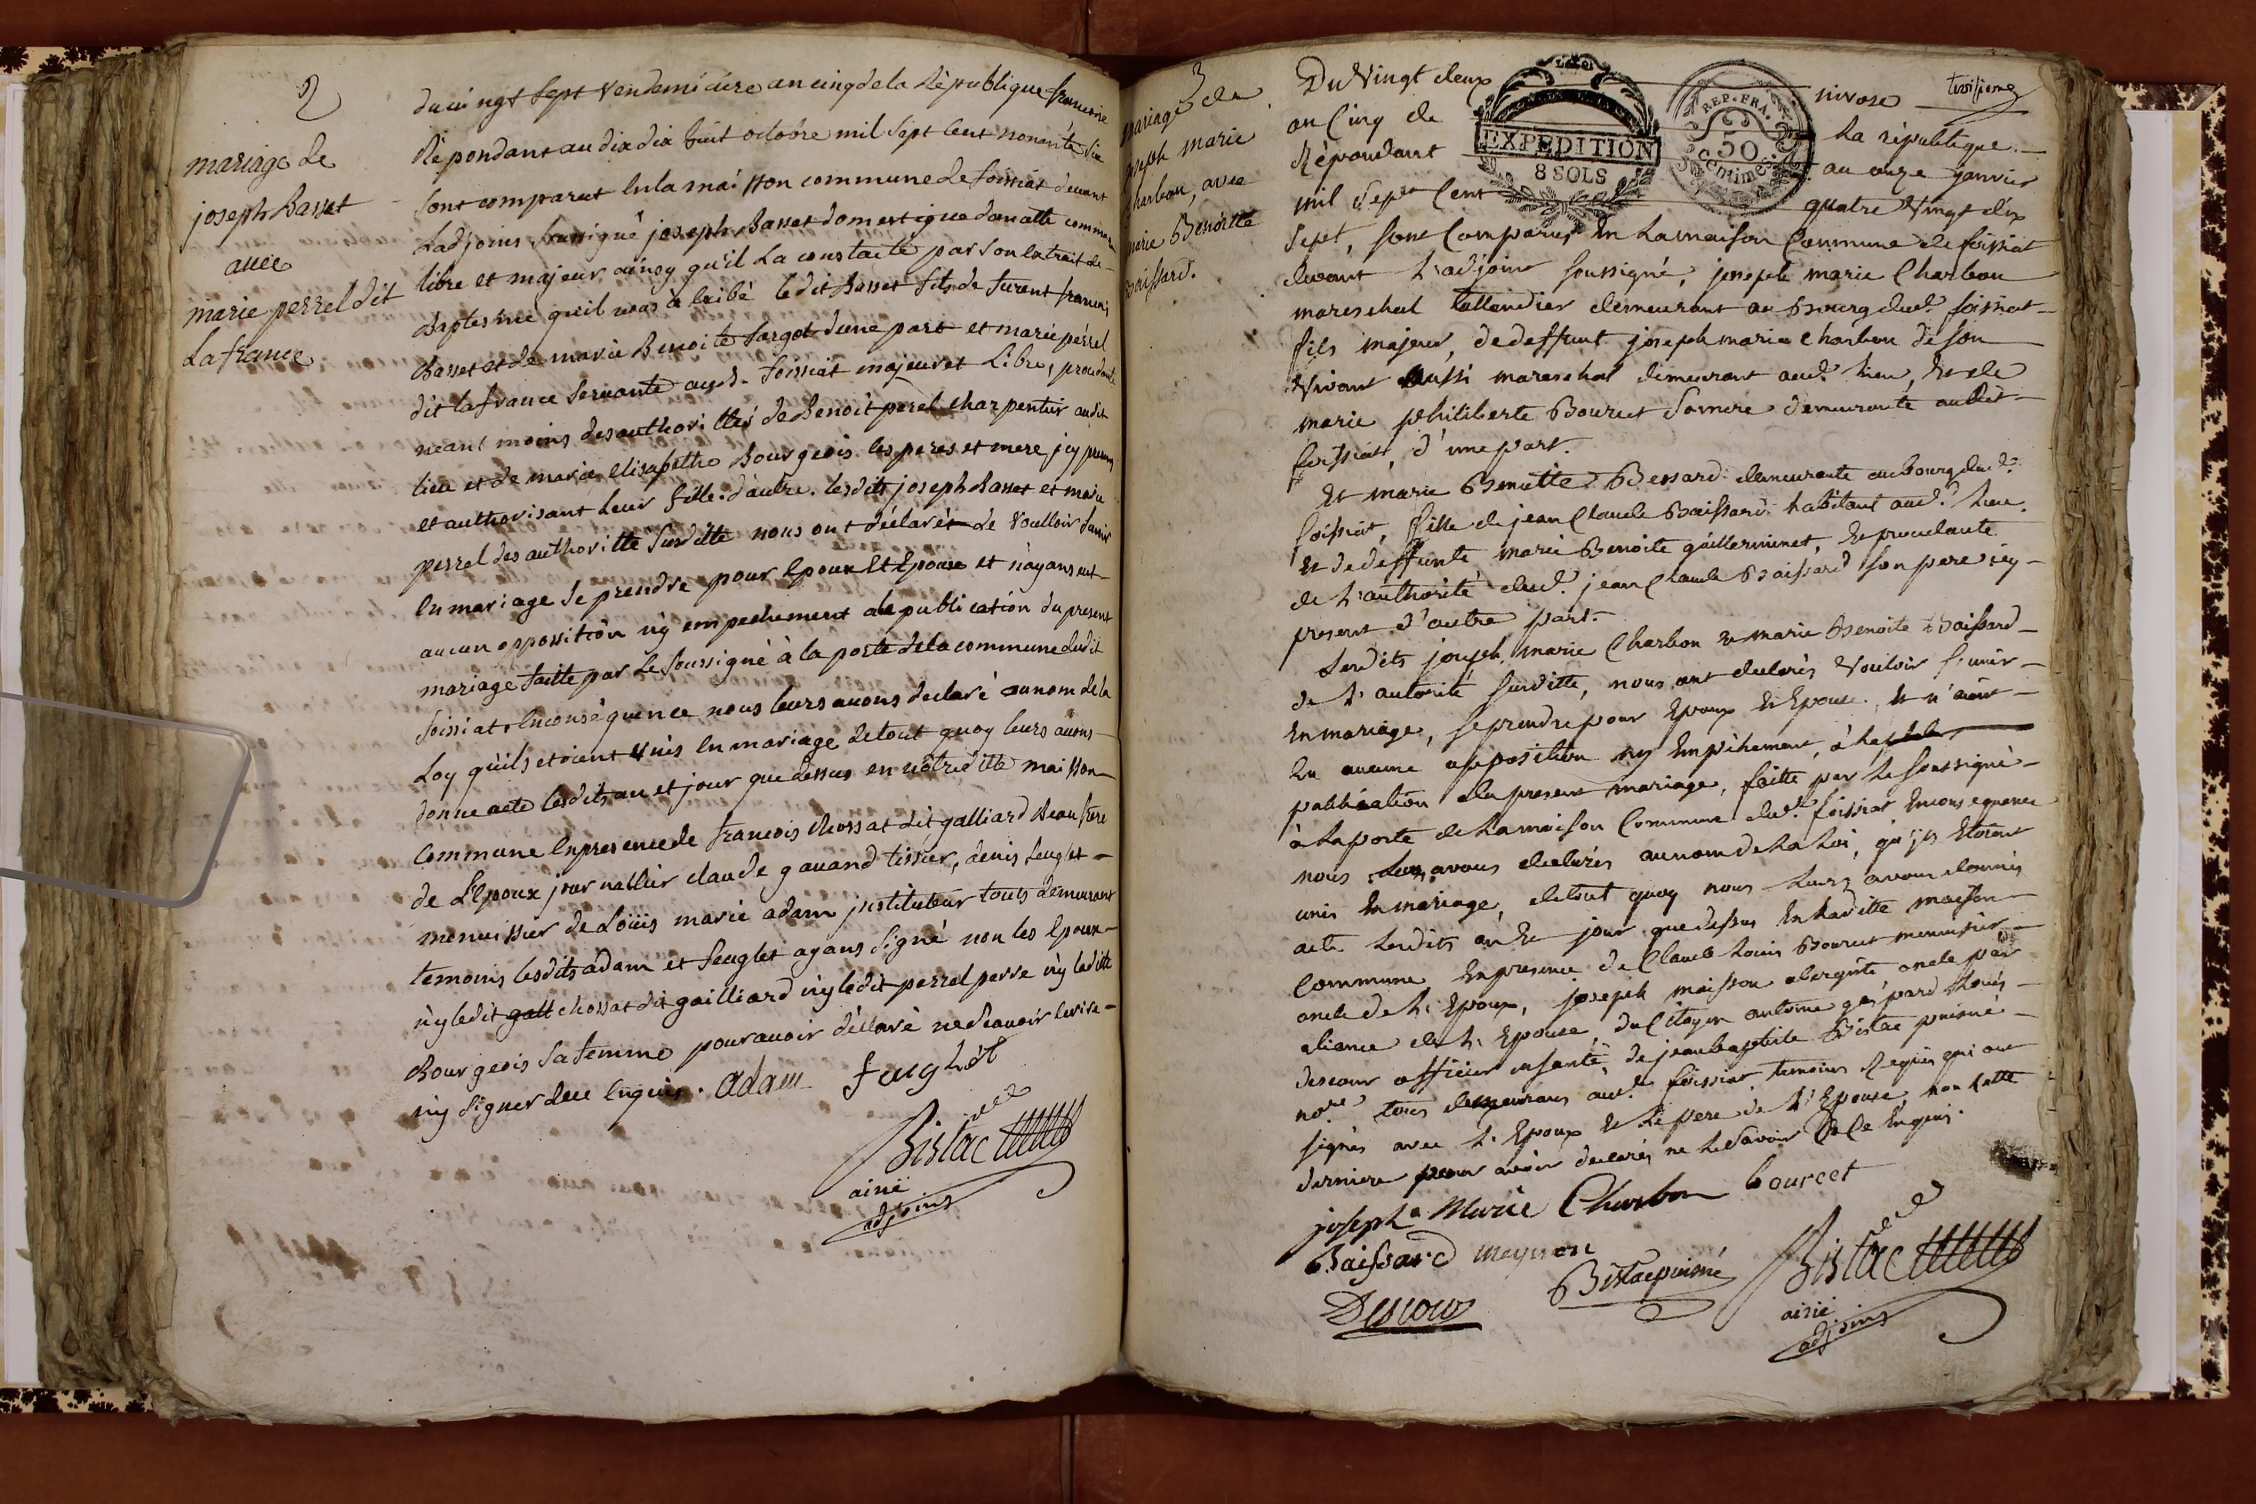 2
mariage de
joseph Basset
avec
marie perrel dit
La france
du vingt sept vendemiaire an cinq de la République francoise
Répondant au dix huit octobre mil sept cent nonante six
sont comparut en la maisson commune de foissiat devant
Ladjoins soussigné joseph Basset domestique domatte commune
libre et majeur ainsy qu'il La constaté par son Extrait de
Baptesme qu'il nous à Exibé ledit Basset fils de furent francois
Basset et de marie Benoite fargot dune part et marie pérrel
dit lafrance servante aud. foissiat majeur et Libre, procedante
neant moins des authorittés de Benoit perel charpentier audit
lieu et de marie Elisabethe Bourgeois les peres et mere jcy presens
et authorisant Leur fille. d'autre. lesdits joseph Basset et marie
perrel des authoritté susditte nous ont déclarés de Voulloir sunir
En mariage se prendre pour Epoux Et Epouse et n'ayans eut
aucun oppossition ny empechement a la publication du present
mariage faitte par Le soussigné à la porte de la commune dudit
foissiat, Enconséquence nous leurs avons declaré au nom de la
Loy qu'ils etoient unis En mariage de tout quoy leurs avons
donne acte lesdits an et jour que dessus en nôtreditte maisson
commune En presence de francois Chossat dit galliard Beau frere
de L'Epoux journallier claude gavand tissier, denis feuglet
menuissier de Loüis marie adam jnstituteur touts demeurant
temoins lesdits adam et feuglet ayans signé non les Epoux
n'y ledit gall chossat dit gailliard n'y ledit perrel perre n'y laditte
Bourgeois sa femme pour avoir dèllaré ne scavoir Ecrire
n'y signer dece Enquis. adam feuglet
Bistac
ainé
adjoins
3
mariage de
joseph marie
Charbon, avec
marie Benoitte
Baissard.
EXPEDITION
8 SOLS
REP. FRA.
50
Centimes
Du Vingt deux nivose troisieme
an Cinq de La république
Répondant au onze janvier
mil sept Cent quatre Vingt dix
sept, sont Comparus En La maison Commune de foissiat
devant L'adjoint soussigné, joseph marie Charbon
mareschal tallandier demeurant au Bourg dud. foissiat
fils majeur, de deffunt joseph marie Charbon de son
Vivant aussi mareschal demeurant aud. lieu, Et de
marie philiberte Bourcet sa mere demeurante audit
foissiat, d'une part.
Et marie Benoitte Bessard demeurante au bourg dud.
foissiat, fille de jean Claude Baissard habitant aud. lieu.
Et de deffunte marie Benoite guillerminet, Et procedante
de L'authorité dud. jean Claude Baissard son pere icy
present d'autre part.
Lesdits joseph marie Charbon Et marie Benoite Baissard
de L'autorité susditte, nous ont declarés Vouloir s'unir
En mariage, se prendre pour Epoux Et Epouse, Et n'aiant
Eu aucune opposition ny Empêchement, à la
publication du present mariage, faitte par Le soussigné
à La porte de La maison Commune dud. foissiat En conséquence
nous Leurs avons declarés au nom de La Loi, qu'ils Etoient
unis En mariage, de tout quoy nous Leurs avons donnés
acte Lesdits an Et jour que dessus En Laditte maison
Commune En presence de Claude Louis Bourcet menuisier
oncle de L'Epoux, joseph maisson aubergiste oncle par
aliance de L'Epouse, du Citoyen antoine gaspard
descour officier de santé, de jean baptiste Bistac puisné
nore tous demeurans aud. foissiat temoins Requis qui ont
signés avec L'Epoux Et Le pere de L'Epouse, non Cette
derniere pour avoir declarés ne Le savoir De Ce Enquis.
joseph Marie Charbon bourcet
Baissard
Bistac puisné
Bistac
Descour
ainé
adjoins